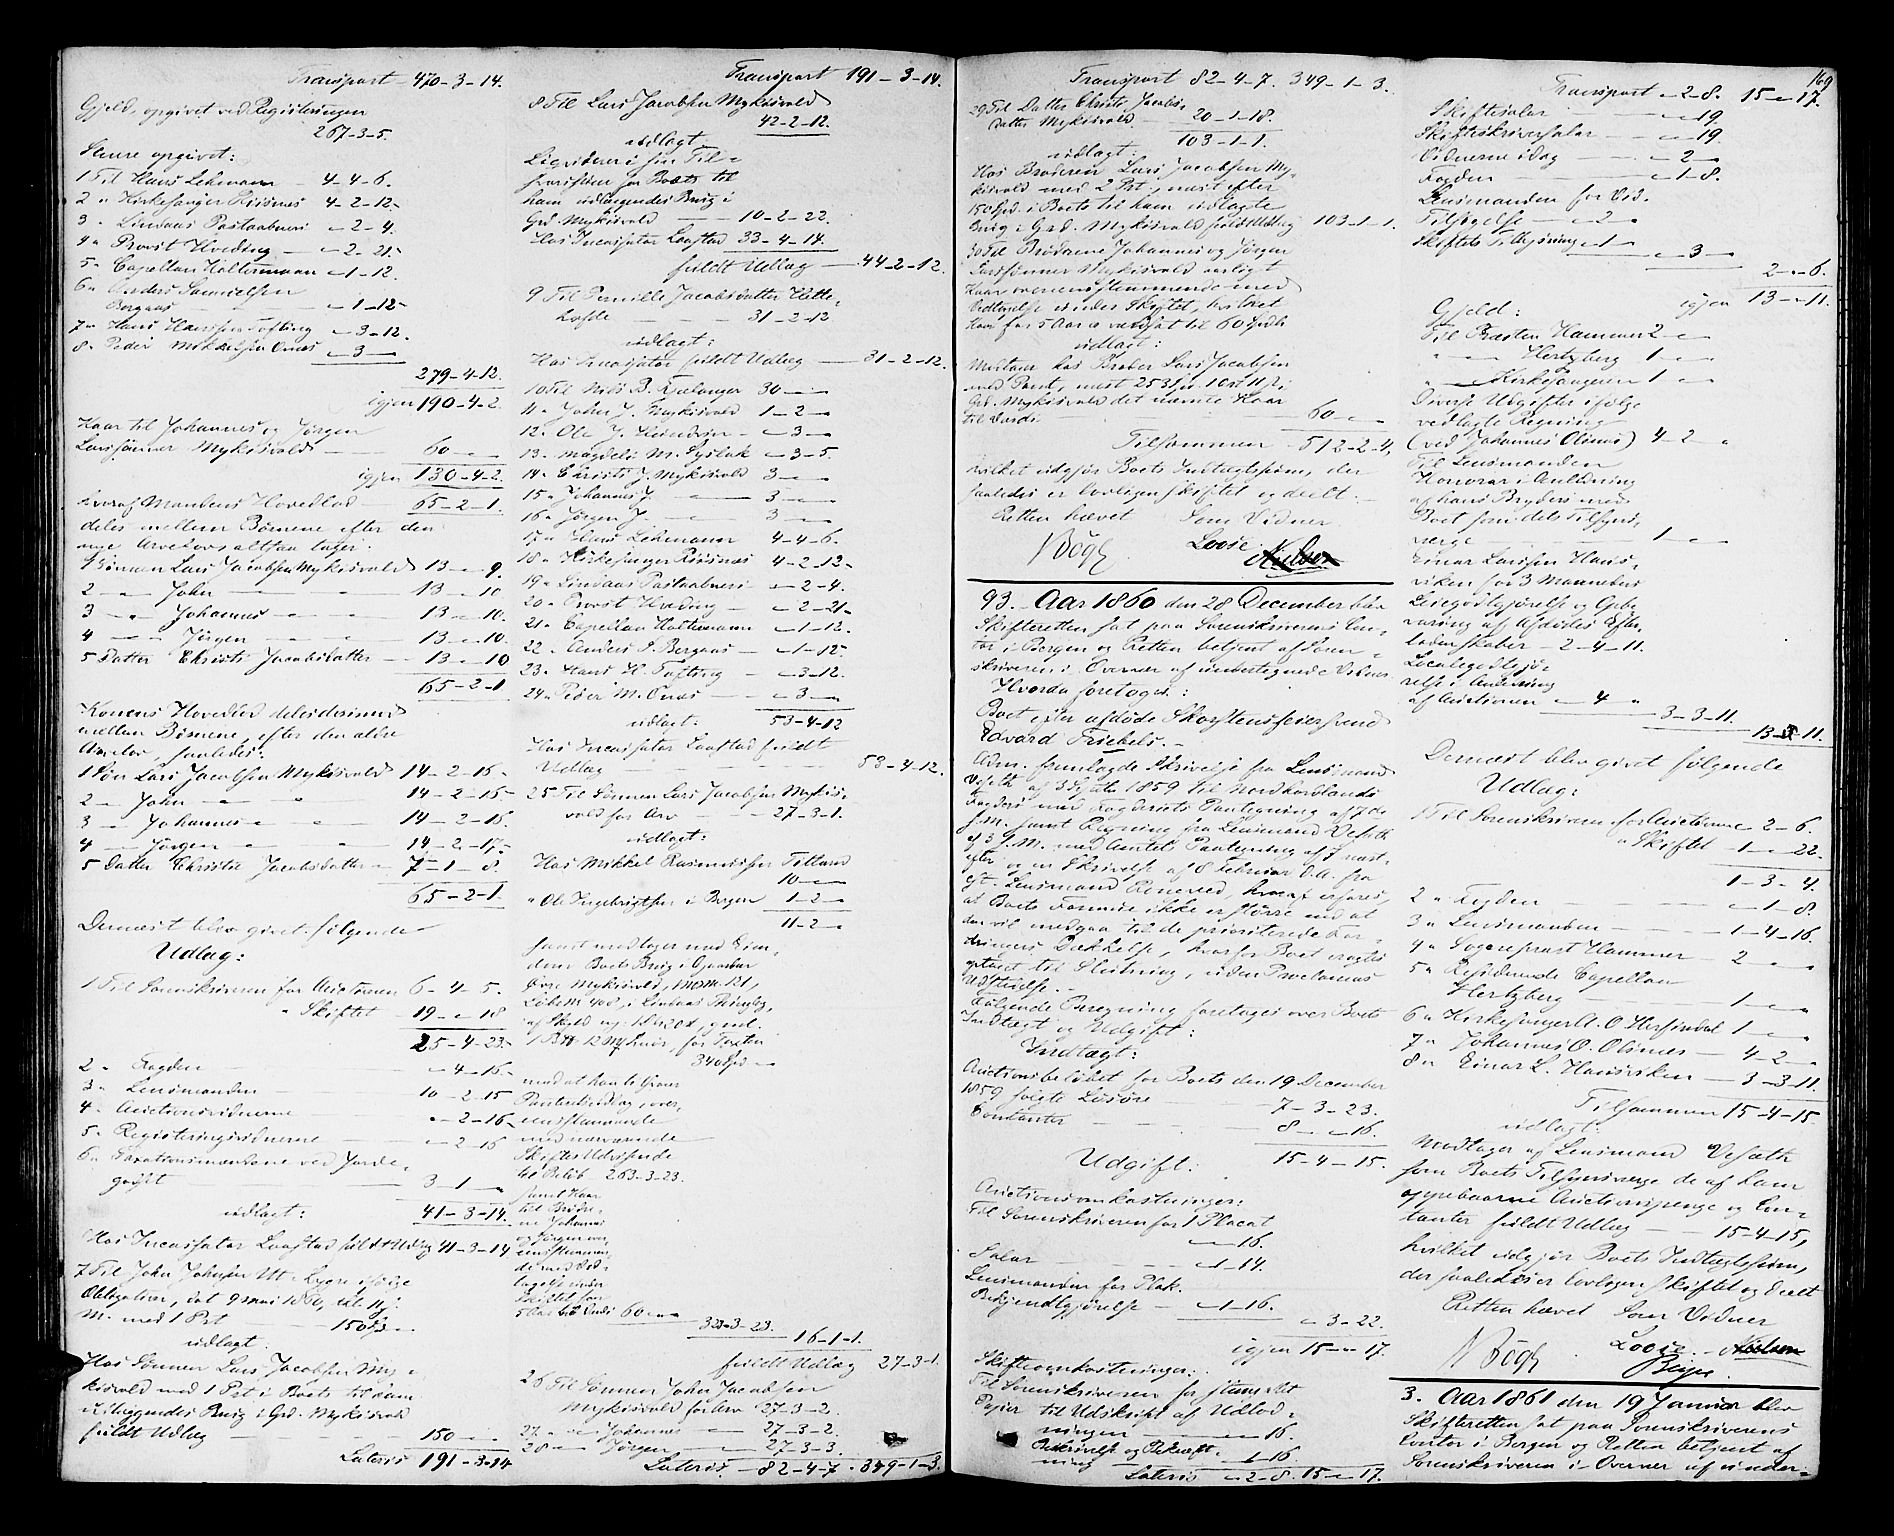 Transport 470-3-14.
Gjeld, opgivet ved Registeringen
267-3-5.
Senere opgivet:
1 Til Hans Lehmann - 4-4-6.
2 " Kirkesanger Risnes 4-2-12.
3 " Lindaas Postaabneri "-2-4.
4 " Provst Hveding - "-2-21.
5 " Capellan Holtermann "-1-12.
6 " Anders Samuelsen
Bergaas "-1-12.
7 " Hans Hansen Tofting "-3-12.
8 " Peder Mikkelsen Onæs "-3-"
279-4-12.
igjen 190-4-2.
Kaar til Johannes og Jørgen
Larssønner Myksvold 60-"-"
igjen 130-4-2.
hvoraf Mandens Hovedlod - 65-2-1.
deles mellem Børnene efter den
nye Arvelov altsaa tager:
1 Sønnen Lars Jacobsen Myksvold 13-"-9.
2 - " John 13-"-10
3 - " Johannes 13-"-10.
4 - " Jørgen 13-"-10.
5 Datter Christi Jacobsdatter - 13-"-10
65-2-1
Konens Hovedlod deles derimod
mellem Børnene, efter den ældre
Arvelov, saaledes:
1 Søn Lars Jacobsen Myksvold 14-2-15.
2 - John 14-2-15.
3 - Johannes 14-2-15.
4 - Jørgen 14-2-17.
5 Datter Christi Jacobsdatter 7-1-8.
65-2-1.
Dernæst blev givet følgende
Udlæg:
1 Til Sorenskriveren for Auctionen 6-4-5.
" Skiftet 19-"-18
25-4-23.
2 " Fogden "-4-15
3 " Lensmanden 10-2-15
4 " Auctionsvidnerne "-2-16
5 " Registeringsvidnerne "-2-16
6 " Taxationsmændene ved Jorde-
godset 3-1-"
udlagt: 41-3-14.
Hos Incassator Laastad fuldt Udlæg 41-3-14
7 Til John Johnsen Ut. Lygre ifølge
Obligation, dat. 9 Mai 1860,
M. med 1 Prt 150
udlagt:
Hos Sønnen Lars Jacobsen My-
ksvold med 1 Prt i Boets til ham
udlæggendes Brug i Grd. Myksvold
fuldt Udlæg 150-"-"
Lateris 191-3-14
Transport 191-3-14.
8 Til Lars Jacobsen Myksvold
42-2-12.
udlagt
Liqviderer i sin Til-
svarssum for Boets til
ham udlæggendes Brug i
Grd. Myksvold 10-2-22.
Hos Incassator Laastad 33-4-14.
fuldt Udlæg 44-2-12.
9 Til Pernille Jacobsdatter Hette-
31-2-12
udlagt:
Hos Incassator fuldt Udlæg 31-2-12.
10 Til Nils B. Kjelanger 30-"-"
11 " John J. Myksvold 1-2-"
12 " Ole J. "-3-"
13 " Magdeli M. "-3-5.
14 " Christi J. Myksvold 3-"-"
15 " Johannes J. 3-"-"
16 " Jørgen J. 3-"-"
17 " Hans Lehmann 4-4-6.
18 " Kirkesanger Risnes 4-2-12.
19 " Lindaas Postaabneri "-2-4.
20 " Provst Hveding "-2-21
21 " Capellan Holtermann "-1-12.
22 " Anders S. Bergaas "-1-12.
23 " Hans H. Tofting "-3-12.
24 " Peder M. Onæs "-3-"
udlagt: 53-4-12
Hos Incassator Laastad fuldt
Udlæg 53-4-12.
25 Til Sønnen Lars Jacobsen Myksvold
for Arv 27-3-1.
udlagt:
Hos Mikkel Rasmussen Titland
10-"-"
" Ole Ingebrigtsen i Bergen 1-2-"
11-2-"
samt modtager med Eien-
dom Boets Brug i Gaarden
Øvre Myksvold, Mm. 121,
Løbe Nr 408, i Lindaas Thinglag,
af Skyld ny:
for Taxten
340 Spd
mod at han
overensstemmende
med nærværende
Skiftes Udvisende
til Beløb 263-3-23.
samt Kaar
til Brødre-
ne Johannes
og Jørgen over-
eensstemmen-
de med Ved-
tagelse under
Skiftet for
5 Aar til Værdi 60-"-"
323-3-23.
16-1-1.
fuldt Udlæg 27-3-1.
26 Til Sønnen John Jacobsen
Myksvold for Arv 27-3-2.
27 " Johannes 27-3-2.
28 " Jørgen 27-3-3.
Lateris - 82-4-7. 349-1-3
169
Transport 82-4-7. 349-1-3.
29 Til Datter Christi Jacobs-
datter Myksvold 20-1-18.
103-1-1.
udlagt:
Hos Broderen Lars Jacobsen My-
ksvold med 2 Prt., næst efter
150 Spd. i Boets til ham udlagte
Brug i Grd. Myksvold fuldt Udlæg 103-1-1.
30 Til Brødrene Johannes og Jørgen
Larssønner Myksvold aarligt
Kaar overensstemmende med
Vedtagelse under Skiftet, hvilket
Kaar for 5 Aar er værdsat til 60 Spdlr
udlagt:
Modtaer hos Broder Lars Jacobsen
med Pant, næst 253 Spd. i
Grd. Myksvold det nævnte Kaar
til Værdi 60-"-"
Tilsammen 512-2-4,
hvilket udgjør Boets Indtægtssum, der
saaledes er lovligen skiftet og deelt.
Retten hævet Som Vidner
NBögh Loose. Nielsen
93. Aar 1860 den 28 December blev
Skifteretten sat paa Sorenskriverens Con-
tor i Bergen og Retten betjent af Soren-
skriveren i Overvær af undertegnede Vidner
Hvorda foretoges:
Boet efter afdøde Skorstensfeiersvend
Edvard Friebels.
Adm. fremlagde Skrivelse fra Lensmand
Veseth af 3 Septbr 1859 til Nordhordlands
Fogderi med Fogderiets Paategning af 17 de
s. M. samt Regning fra Lensmand Veseth
af 3 s. M. med Amtets Paategning af 7 næst-
efter og en Skrivelse af 8 Februar d. A. fra
cst. Lensmand hvoraf erfares,
at Boets Formue ikke er større end at
den vil medgaa til de prioriterede For-
dringers Dækkelse, hvorfor Boet ansees
optaget til Slutning, uden Proclamas
Udstedelse.
Følgende Beregning foretages over Boets
Indtægt og Udgift:
Indtægt:
Auctionsbeløbet for Boets den 19 December
1859 solgte Løsøre 7-3-23.
Contanter 8-"-16.
15-4-15.
Udgift:
Auctionsomkostninger:
Til Sorenskriveren for 1 Placat
"-"-16.
Salær "-1-14.
Lensmanden for Plak.
Bekjendtgjørelse "-1-16.
"-3-22.
igjen 15-"-17.
Skifteomkostninger:
Til Sorenskriveren for stemplet
Papir til Udskrift af Udlod-
ningen "-"-16.
Beskrivelse og Bekræft-
ning "-1-16.
Lateris "-2-8. 15-"-17.
Transport "-2-8. 15-"-17.
Skiftesalær "-"-19.
Skifteskriversalær "-"-19.
Vidnerne idag "-2-"
Fogden "-1-8.
Lensmanden for Vid.
Tilsigelse "-2-"
Skiftets Tilsyning "-1-"
"-3-"
2-"-6.
igjen 13-"-11.
Gjeld:
Til Præsten Hammer 2-"-"
" Hertzberg 1-"-"
" Kirkesangeren 1-"-"
Diverse Udgifter ifølge
vedlagte Regning
(ved Johannes Olsnes) 4-2-"
Til Lensmanden
Honorar i Anledning
af hans Bryderi med
Boet som dets Tilsyns-
værge 1-"-"
Einar Larssen Hans-
viken for 3 Maaneders
Leiegodtgjørelse og Opbe-
varing af Afdødes Efter-
ladenskaber - 2-4-11.
Localegodtgjø-
relse i Anledning
af Auctionen "-4-"
3-3-11.
13-"-11.
Dernæst blev givet følgende
Udlæg:
1 Til Sorenskriveren for Auctionen "-2-6.
" Skiftet 1-"-22.
1-3-4.
2 " Fogden "-1-8.
3 " Lensmanden 1-4-16.
4 " Sogneprest Hammer 2-"-"
5 " Residerende Capellan
Hertzberg 1-"-"
6 " Kirkesanger A. O Hersindal 1-"-"
7 " Johannes O. Olsnes 4-2-"
8 " Einar L. Hansviken 3-3-11.
Tilsammen 15-4-15
udlagt:
Modtages af Lensmand Veseth
som Boets Tilsynsværge de af ham
oppebaarne Auctionspenge og Con-
tanter fuldt Udlæg 15-4-15,
hvilket udgjør Boets Indtægtssum,
der saaledes er lovligen skiftet og deelt
Retten hævet Som Vidner
NBögh Loose. Nielsen
Beyer.
3. Aar 1861 den 19 Januar blev
Skifteretten sat paa Sorenskriverens
Contor i Bergen og Retten betjent af
Sorenskriveren i Overvær af under-